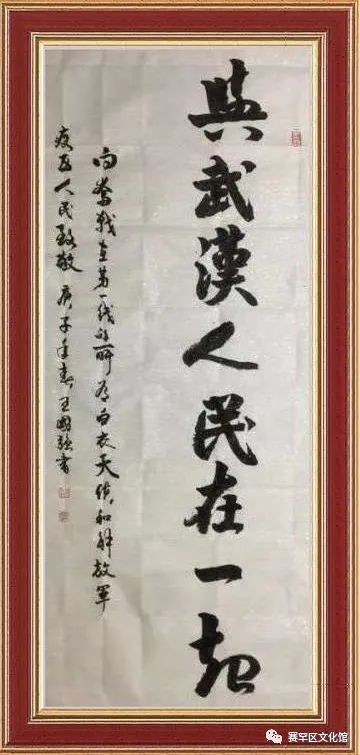 與武漢人民在一起
向奮戰在第一线的所有白衣天使和解放軍
疫区人民致敬 庚子年春 王國强書
赛罕区文化馆